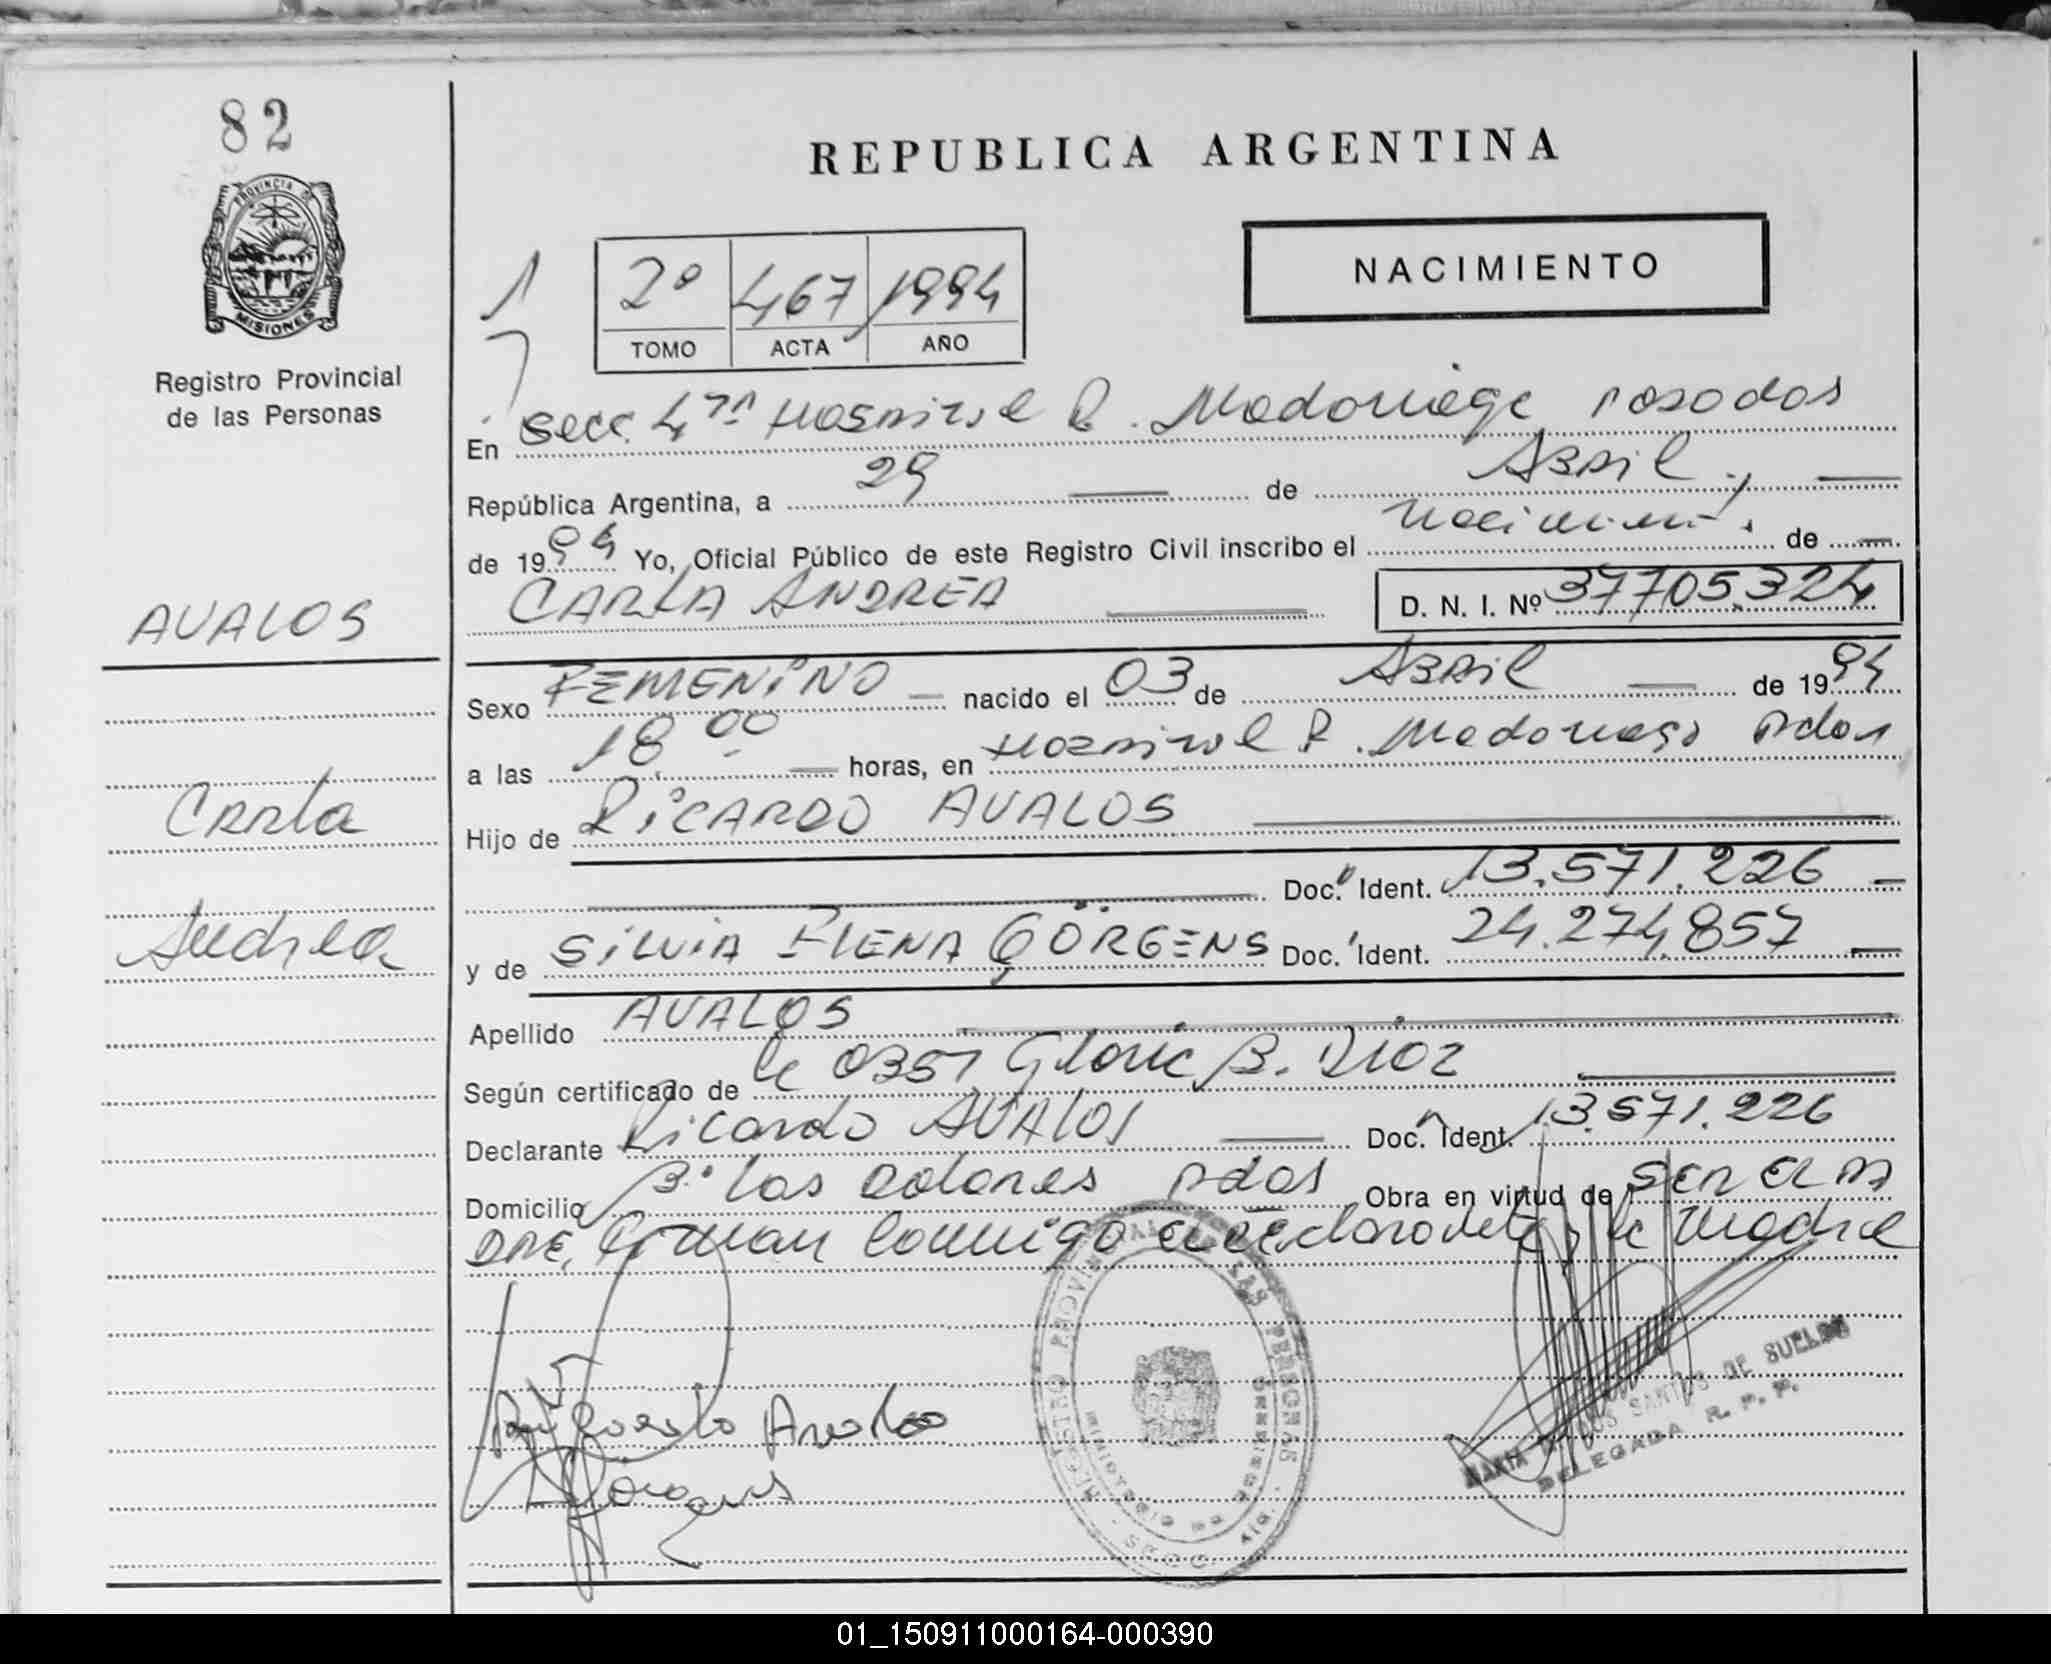 82
PROVINCIA DE
MISIONES
Registro Provincial
de las Personas
AVALOS
Carla
Andrea
REPUBLICA ARGENTINA
NACIMIENTO
1
2º 467 1994
TOMO ACTA AÑO
En Secc. 4ta Hospital R. Madariaga posadas
República Argentina, a 29 de Abril
de 1994 Yo, Oficial Público de este Registro Civil inscribo el nacimiento de
CARLA ANDREA D. N. I. Nº 37705.324
Sexo FEMENINO nacido el 03 de Abril de 1994
a las 18 00 horas, en Hospital R. Madariaga Pdas
Hijo de RICARDO AVALOS
Doc. Ident. 13.571.226
y de SILVIA ELENA GÖRGENS Doc. Ident. 24.274.857
Apellido AVALOS
Según certificado de la 0357 Gloria B. Díaz
Declarante Ricardo AVALOS Doc. Ident. 13.571.226
Domicilio Bº Los Pdas Obra en virtud de ser el PA
DRE, firman conmigo el declarante y la madre
Avalos
Görgens
REGISTRO PROVINCIAL DE LAS PERSONAS
MARIA SANTOS DE SUELDO
DELEGADA R. P. P.
01_150911000164-000390